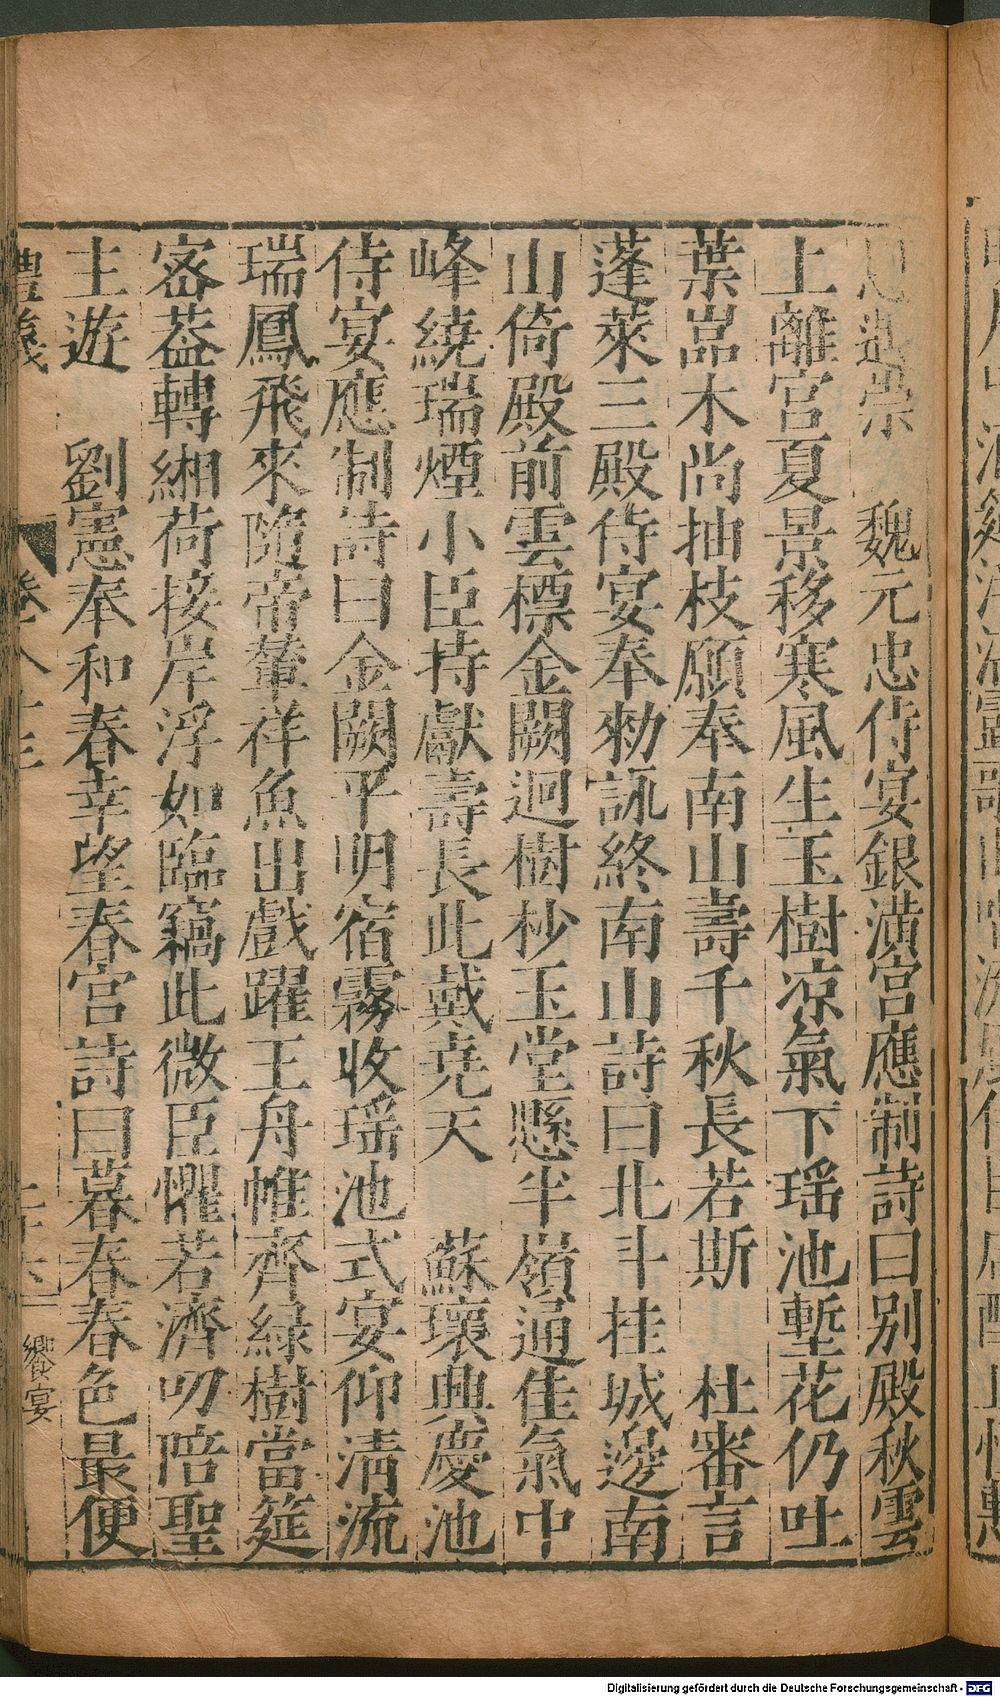 遏崇　魏元忠侍宴銀潢宮應制詩曰別殿秋雲
上離宮夏景移寒風生玉樹涼氣下瑶池塹花仍吐
葉嵓木尚抽枝願奉南山壽千秋長若斯　杜審言
蓬萊三殿侍宴奉勑詠終南山詩曰北斗挂城邊南
山倚殿前雲標金闕迥樹杪玉堂懸半嶺通佳氣中
峰繞瑞煙小臣持獻壽長此戴尭天　蘇瓌興慶池
侍宴應制詩曰金闕平明宿霧收瑶池式宴仰清流
瑞鳳飛來隨帝輦祥魚出戲躍王舟帷齊緑樹當筵
宻葢轉緗荷接岸浮如臨竊此微臣懼若濟叨陪聖
主遊　劉憲奉和春幸望春宮詩曰暮春春色最便
禮儀
卷八十
饗宴
Digitalisierung gefördert durch die Deutsche Forschungsgemeinschaft - DFG